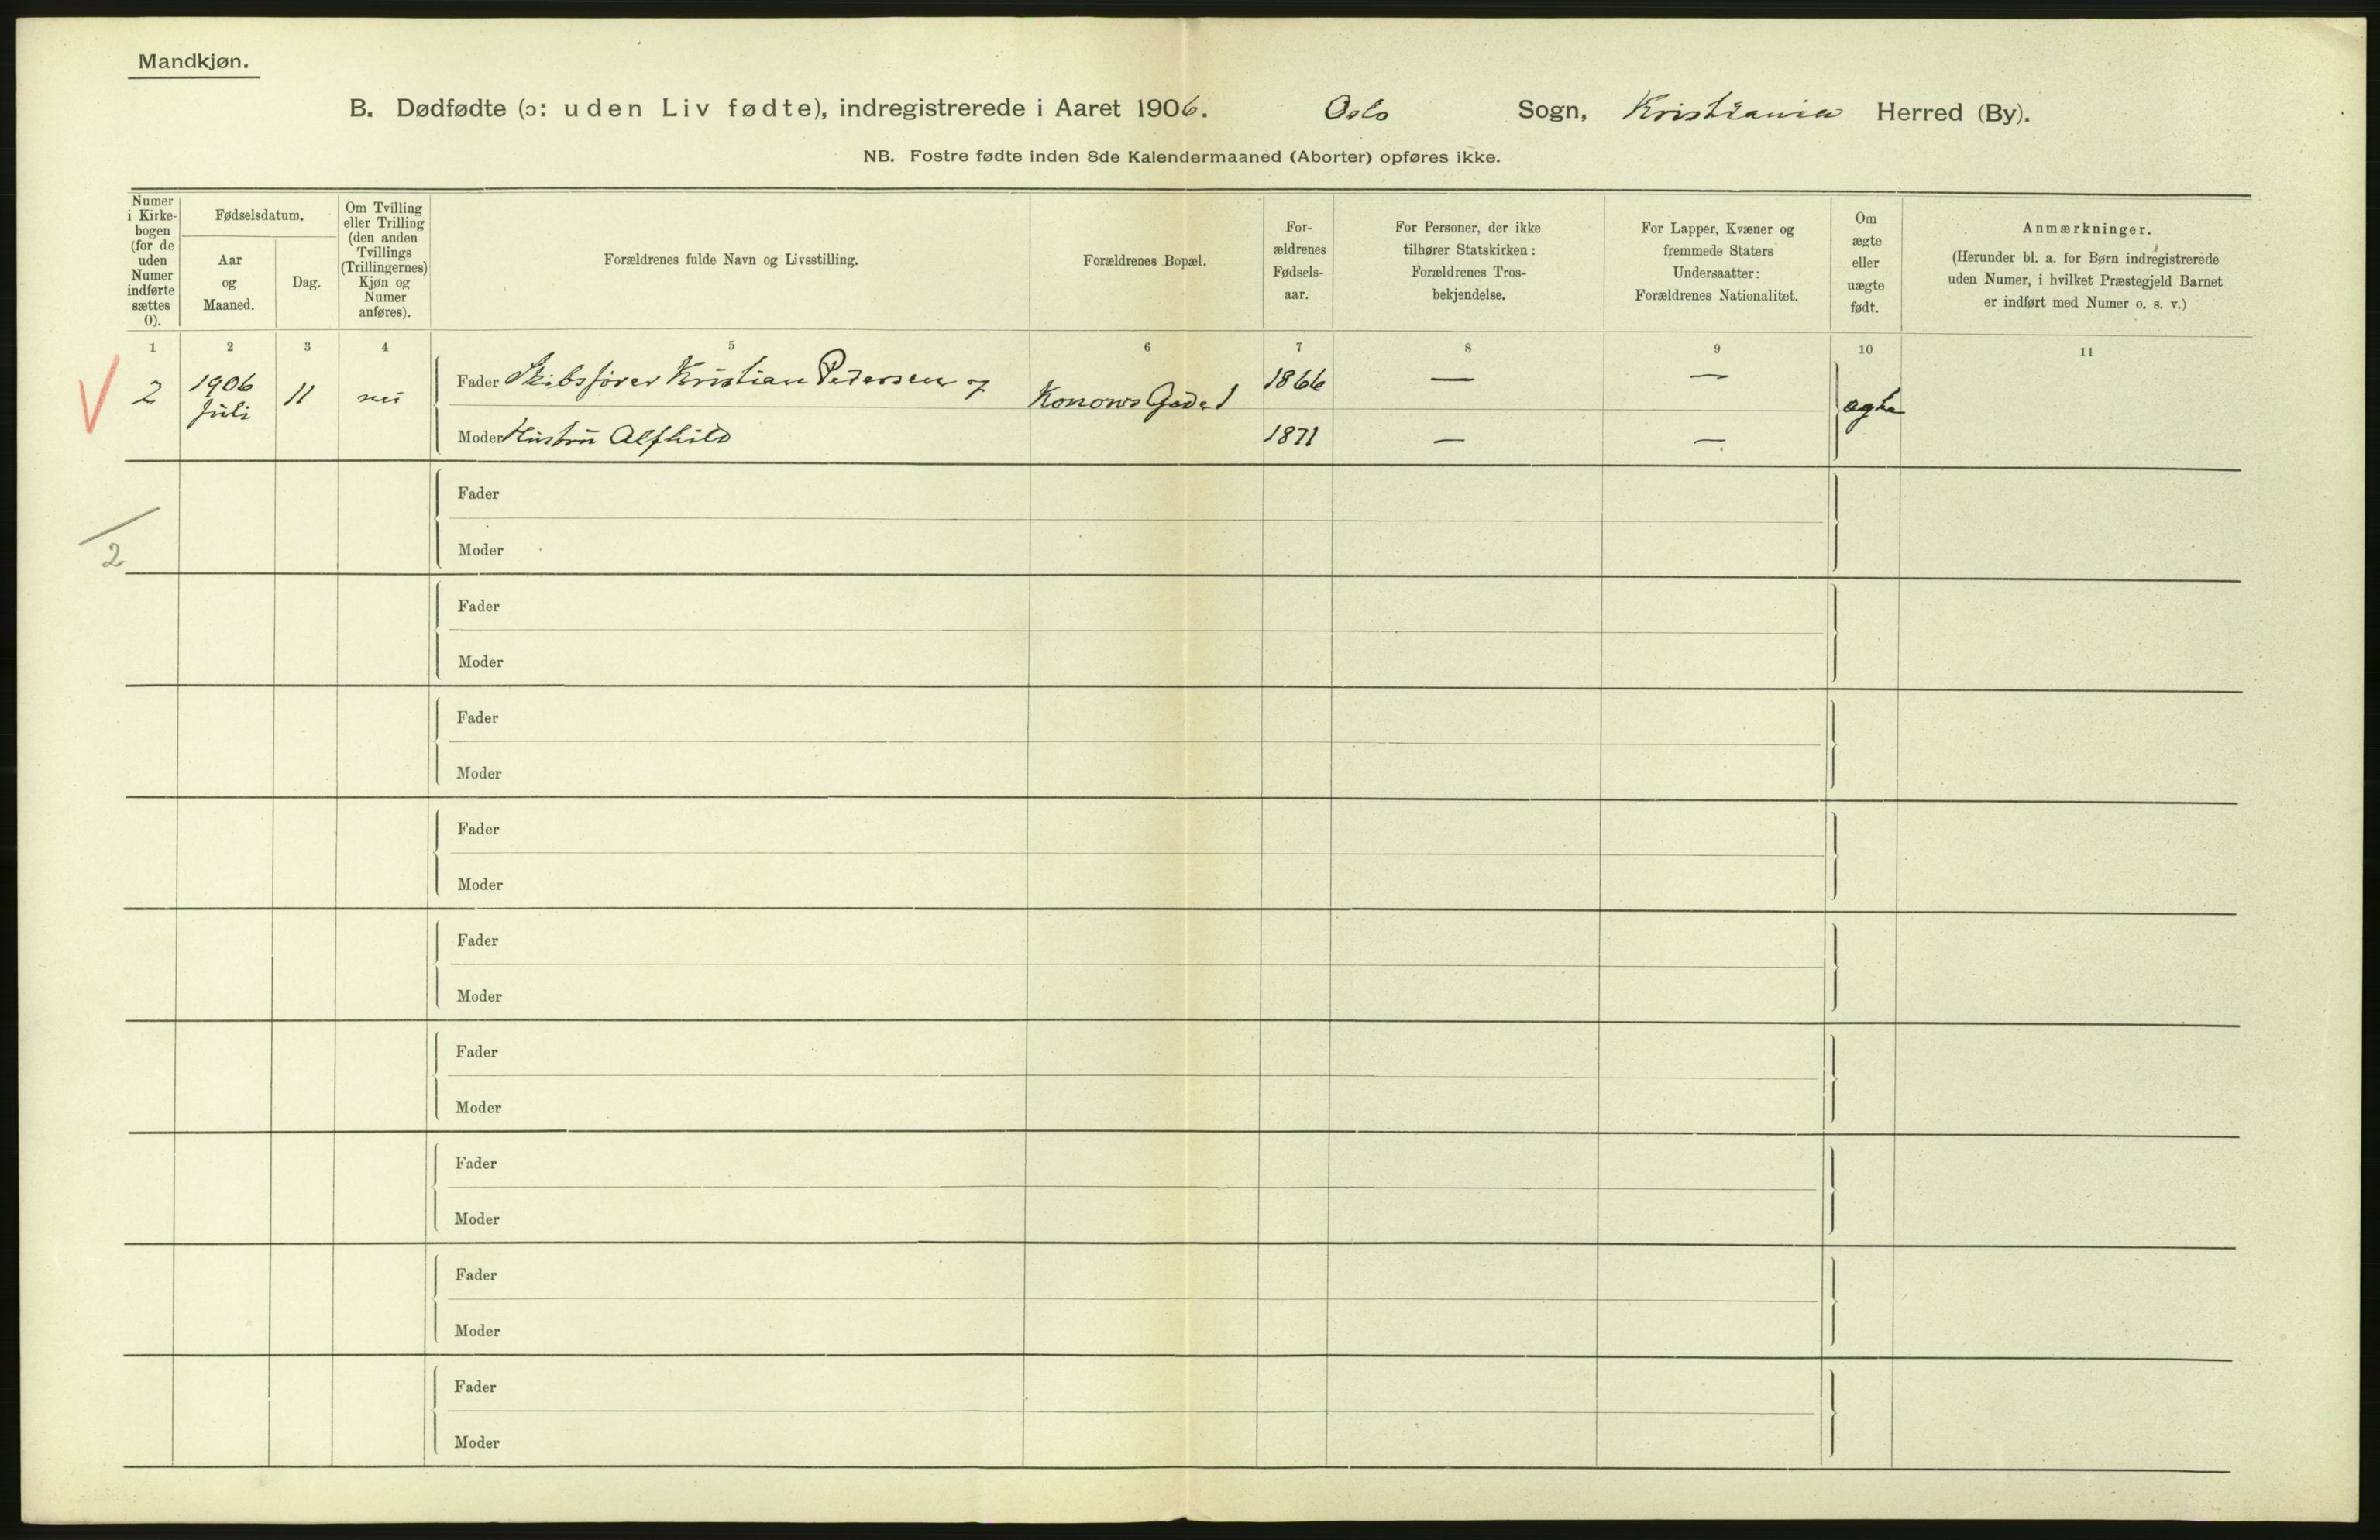 Mandkjøn.
B. Dødfødte (ɔ: uden Liv fødte), indregistrerede i Aaret 1906. Oslo Sogn, Kristiania Herred (By).
NB. Fostre fødte inden 8de Kalendermaaned (Aborter) opføres ikke.
Numer
i Kirke-
bogen
(for de
uden
Numer
indførte
sættes
0).
Fødselsdatum.
Aar
og
Maaned.
Dag.
Om Tvilling
eller Trilling
(den anden
Tvillings
(Trillingernes)
Kjøn og
Numer
anføres).
Forældrenes fulde Navn og Livsstilling.
Forældrenes Bopæl.
For-
ældrenes
Fødsels-
aar.
For Personer, der ikke
tilhører Statskirken:
Forældrenes Tros-
bekjendelse.
For Lapper, Kvæner og
fremmede Staters
Undersaatter:
Forældrenes Nationalitet.
Om
ægte
eller
uægte
født.
Anmærkninger.
(Herunder bl. a. for Børn indregistrerede
uden Numer, i hvilket Præstegjeld Barnet
er indført med Numer o. s. v.)
1 2 3 4 5 6 7 8 9 10 11
2
1906
Juli
11
nei
Fader Skibsfører Kristian Pedersen og
Konows Gade 1
1866
—
—
ægte
Moder Hustru Alfhild
1871
—
—
Fader
2
Moder
Fader
Moder
Fader
Moder
Fader
Moder
Fader
Moder
Fader
Moder
Fader
Moder
Fader
Moder
Fader
Moder